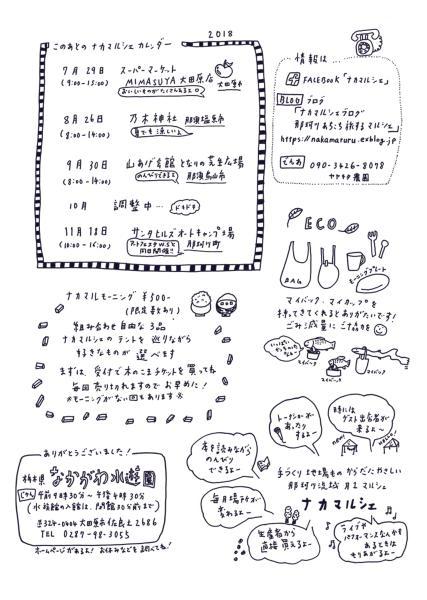 2018
このあとの ナカマルシェ カレンダー
7月29日 スーパーマーケット
(9:00-15:00) MIMASUYA 大田原店
おいしいものがたくさんあるよ 大田原市
8月26日 乃木神社 那須塩原市
(8:00-14:00) 夏でも涼しいよ
9月30日 山あげ会館 となりの芝生広場
(8:00-14:00) のんびりできるよ 那須烏山市
10月 調整中… ドキドキ
11月18日 サンタヒルズオートキャンプ場
(10:00-16:00) アートフェスタW.Sと 那珂川町
同日開催!!
情報は
FACEBOOK「ナカマルシェ」
BLOG ブログ
「ナカマルシェブログ
那珂川あちこち旅するマルシェ」
https://nakamaruru.exblog.jp
でんわ 090-3426-8078
ヤヤナヤ農園
ECO
BAG
モーニングプレート
マイバック、マイカップを
持ってきてくれるとありがたいです!
ごみ減量にご協力を
マイバック
マイバック
マイバック
ナカマルモーニング ¥500-
(限定数あり)
組み合わせ自由な3品
ナカマルシェのテントを巡りながら
好きなものが選べます
まずは、受付で木のこまチケットを買ってね
毎回売り切れますのでお早めに!
※モーニングがない回もあります※
ありがとうございました!
栃木県 なかがわ水遊園
じかん 午前9時30分〜午後4時30分
(水族館の入館は、閉館30分前まで)
〒324-0404 大田原市佐良土2686
TEL 0287-98-3055
ホームページがあるよ! お休みなどを調べてね!
トークショーが
あったり
するよー
時には
ゲスト出店者が
来るよ〜
new!
new!
本を読みながら
のんびり
できるよー
手づくり 地場もの からだにやさしい
那珂川流域 月1マルシェ
ナカマルシェ
毎月場所が
変わるよー
生産者から
直接買えるよー
ライブや
パフォーマンスなんかも
あるときは
もりあがるよー